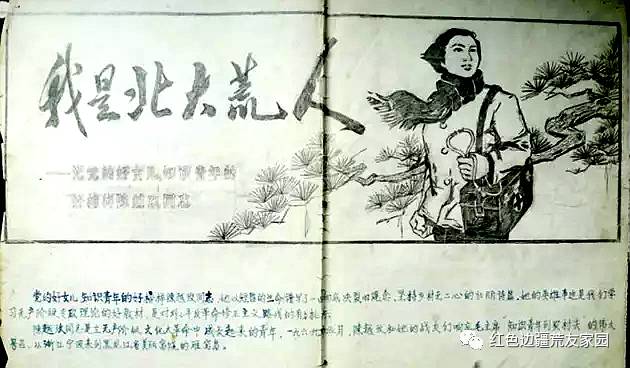 我是北大荒人
——记党的好女儿、知识青年的
好榜样陈越玖同志
党的好女儿、知识青年的好榜样陈越玖同志，她以短暂的生命谱写了一曲 决裂旧观念、坚持乡村无二心的壮丽诗篇。她的英雄事迹是我们学
习无产阶级专政理论的好教材，是对邓小平反革命修正主义路线的有力批判。
陈越玖同志是在无产阶级文化大革命中成长起来的青年，一九六九年 月，陈越玖和她的战友们响应毛主席"知识青年到农村去"的伟大
号召，从浙江宁波来到黑龙江省
红色边疆荒友家园